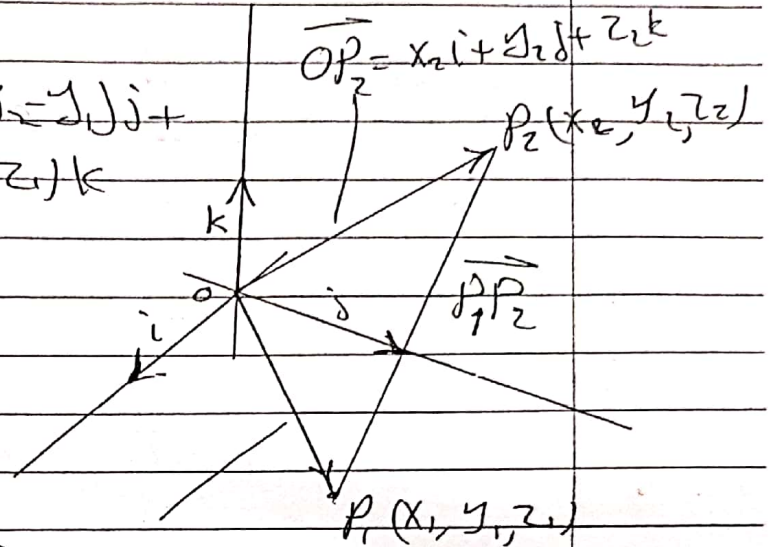 OP₂ = x₂i + y₂j + z₂k
₂-y₁)j+
z₁)k
P₂(x₂, y₂, z₂)
k
o
j
P₁P₂
i
P₁(x₁, y₁, z₁)